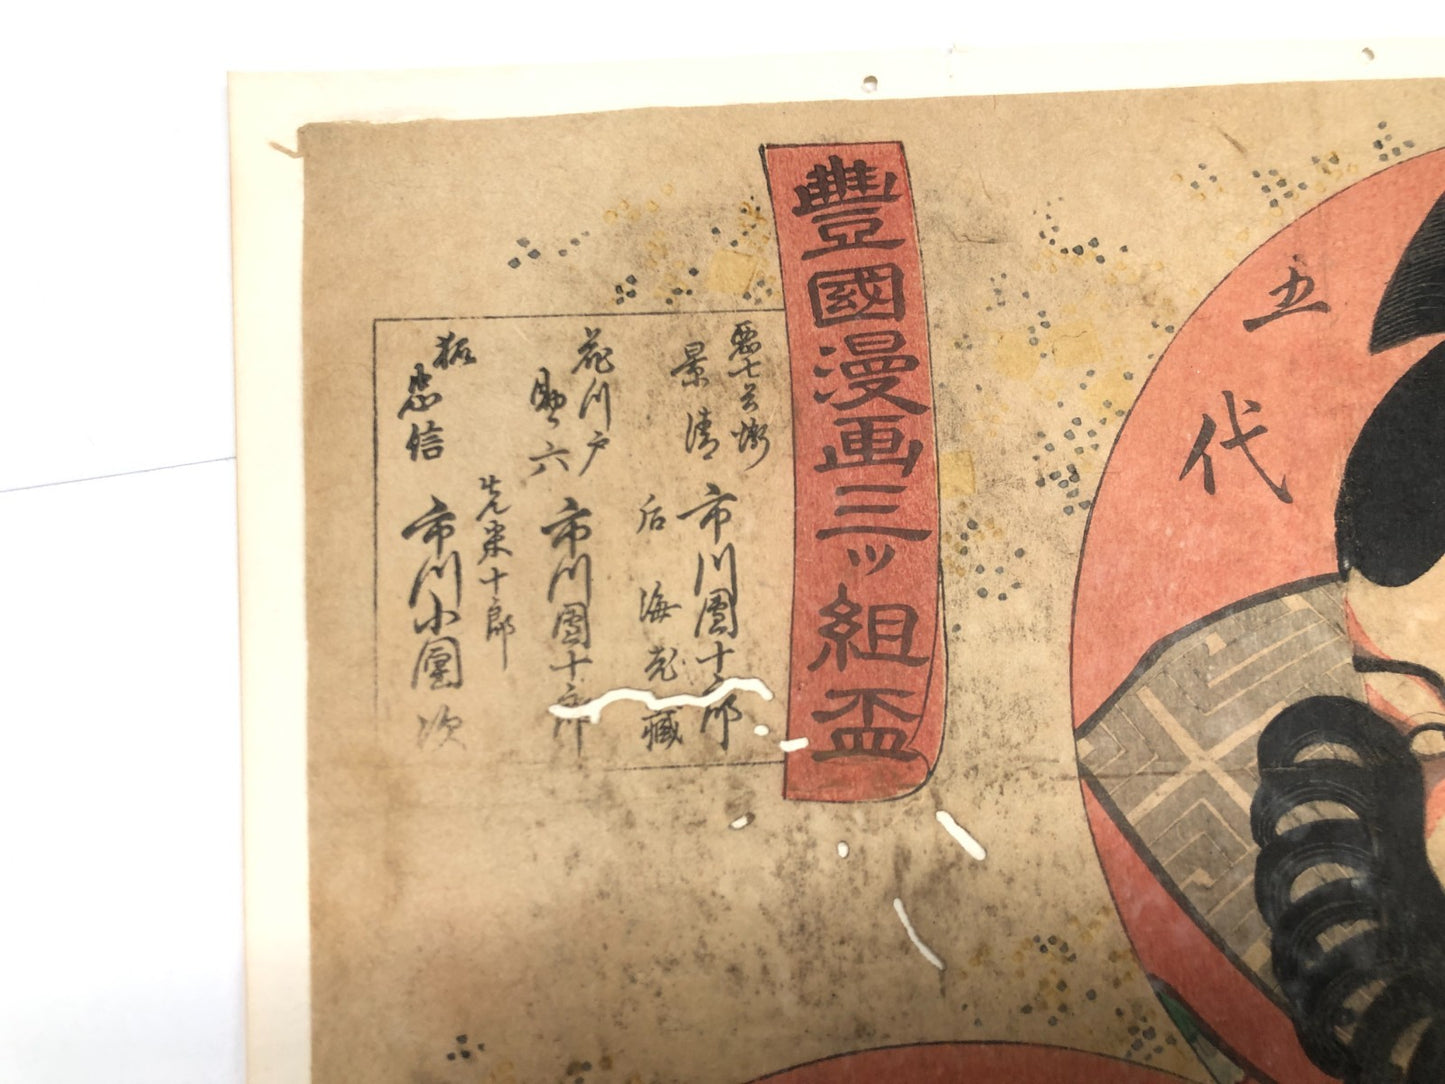 五代
豊國漫画三ツ組盃
悪七兵衛
景清
市川團十郎
后 海老藏
花川戸
助六
市川團十郎
狐
忠信
市川小團次